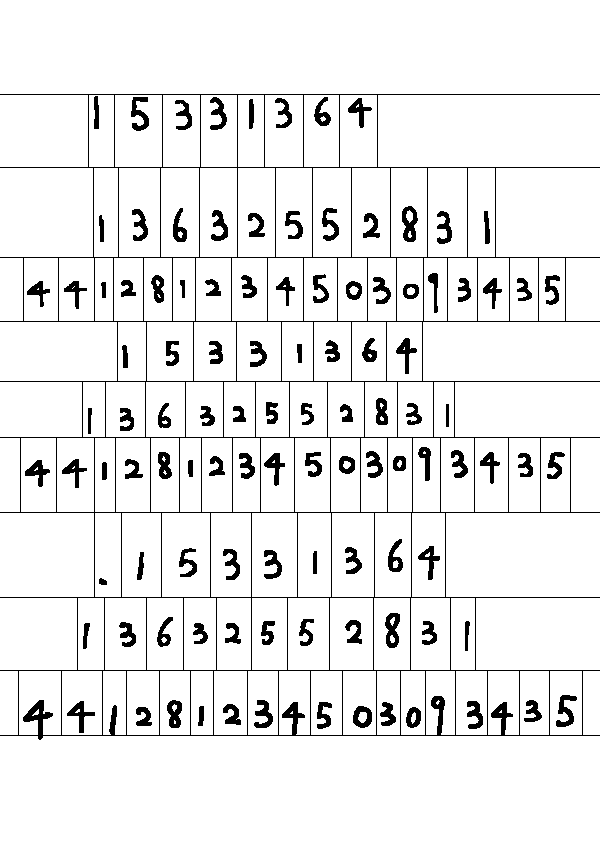 15331364
13632552831
441281234503093435
15331364
13632552831
441281234503093435
.15331364
13632552831
441281234503093435